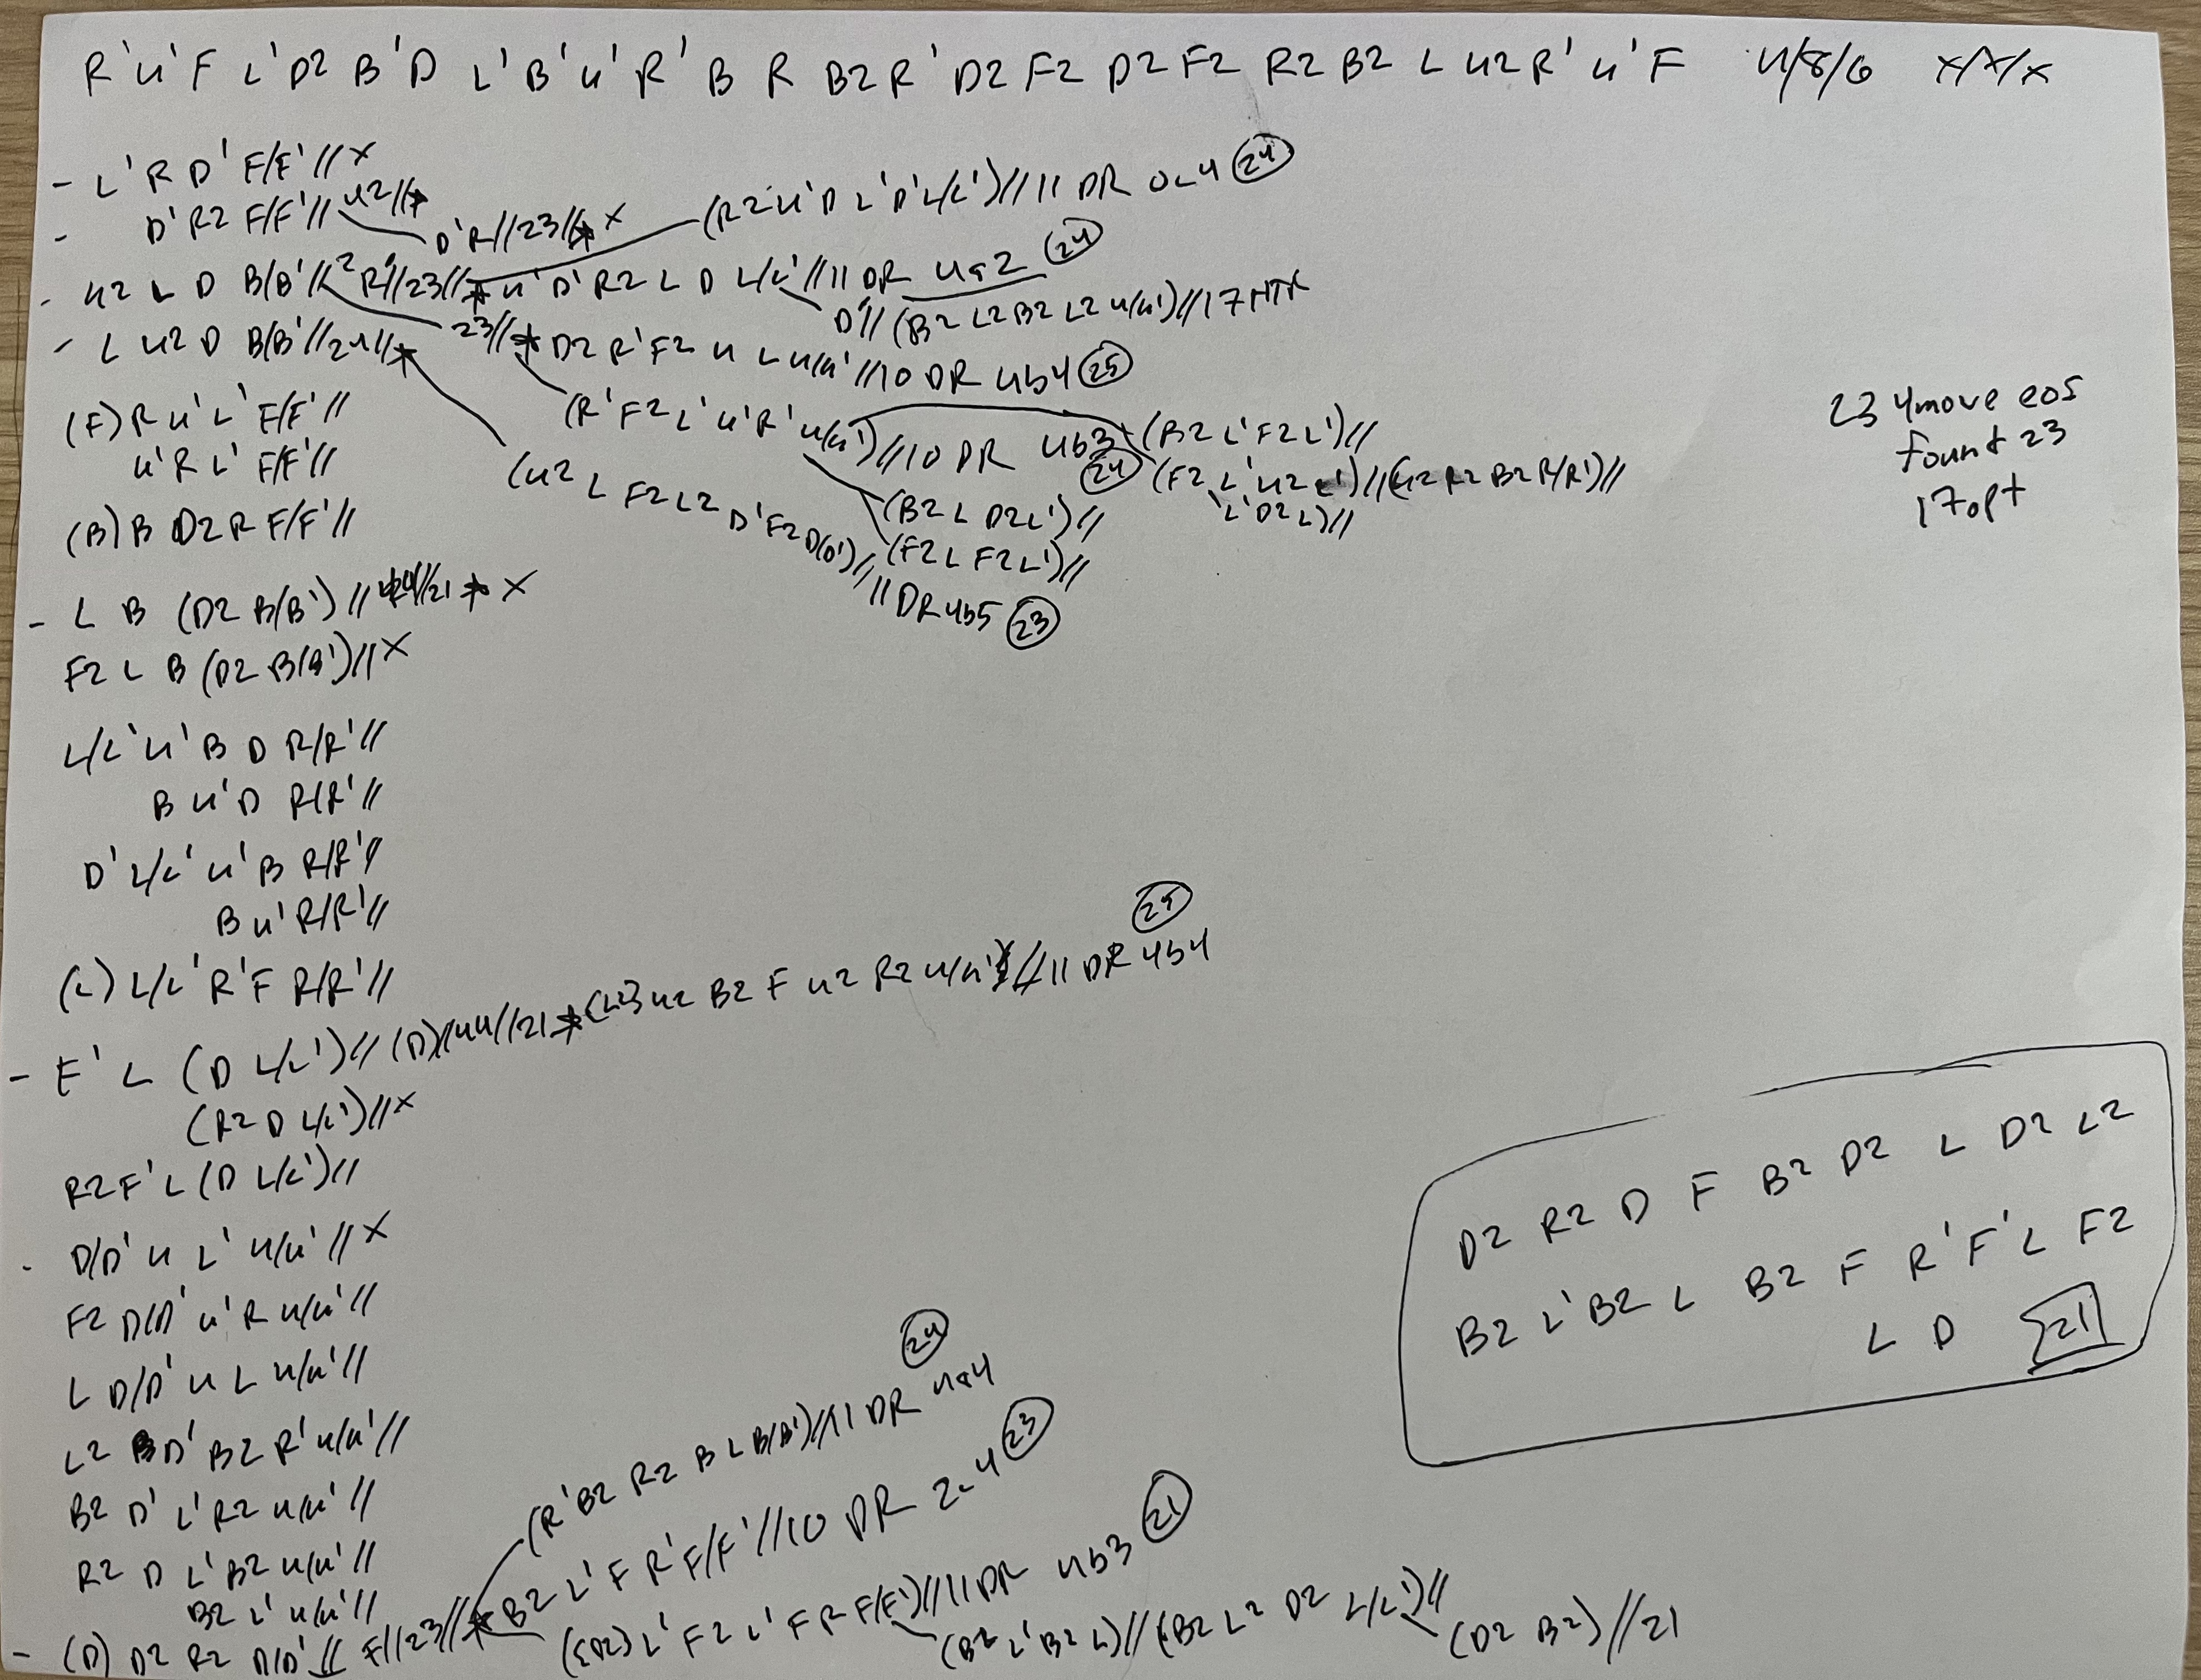 R'U'F L'D2 B'D L'B'U'R'B R B2R'D2 F2 D2 F2 R2 B2 L U2R'U'F 4/8/6 x/x/x
- L'R D' F/F' // x
- D'R2 F/F' // U2//
D'R//23// x
(R2 U'D L'D'L/L')//11 DR 0c4 24
- U2 L D B/B' // R //23// U'D'R2 L D L/L' //11 DR 4a2 24
D// (B2 L2 B2 L2 U/U')//17 HTR
- L U2 D B/B' //21//
23// D2 R'F2 U L U/U' //10 DR 4b4 25
(F) R U'L' F/F' //
(R'F2 L'U'R'U/U')//10 DR 4b3 24
(B2 L'F2 L')//
(F2 L'U2 L')//(U2 R2 B2 R/R')//
L'D2 L)//
(B2 L D2 L')//
(F2 L F2 L')//
U'R L' F/F' //
(U2 L F2 L2 D'F2 D/D')//11 DR 4b5 23
(B) B D2 R F/F' //
23 4move eos
found 23
17 opt
- L B (D2 B/B') // //21 x
F2 L B (D2 B/B')// x
L/L' U' B D R/R' //
B U'D R/R' //
D'L/L' U'B R/R' //
B U'R/R' //
(L) L/L' R'F R/R' //
- F' L (D L/L')// (D)//44//21 U2 B2 F U2 R2 U/U') //11 DR 4b4 25
(R2 D L/L')// x
R2 F'L (D L/L')//
- D/D' U L' U/U' // x
F2 D/D' U'R U/U' //
L D/D' U L U/U' //
L2 D' B2 R'U/U' //
B2 D' L'R2 U/U' //
R2 D L'B2 U/U' //
B2 L' U/U' //
- (D) D2 R2 D/D' // F//23//
(R'B2 R2 B L B/B')//11 DR 4a4 24
B2 L'F R'F/F' //10 DR 2c4 23
([D2] L'F2 L'F R F/F')//11 DR 4b3 21
(B2 L'B2 L)//(B2 L2 D2 L/L')//
(D2 B2)//21
D2 R2 D F B2 D2 L D2 L2
B2 L'B2 L B2 F R'F'L F2
L D 21